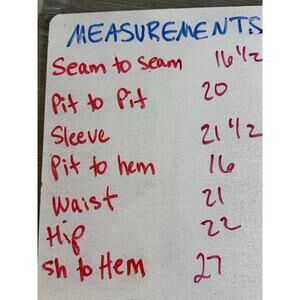 MEASUREMENTS
Seam to seam 16 1/2
Pit to Pit 20
Sleeve 21 1/2
Pit to hem 16
Waist 21
Hip 22
sh to Hem 27